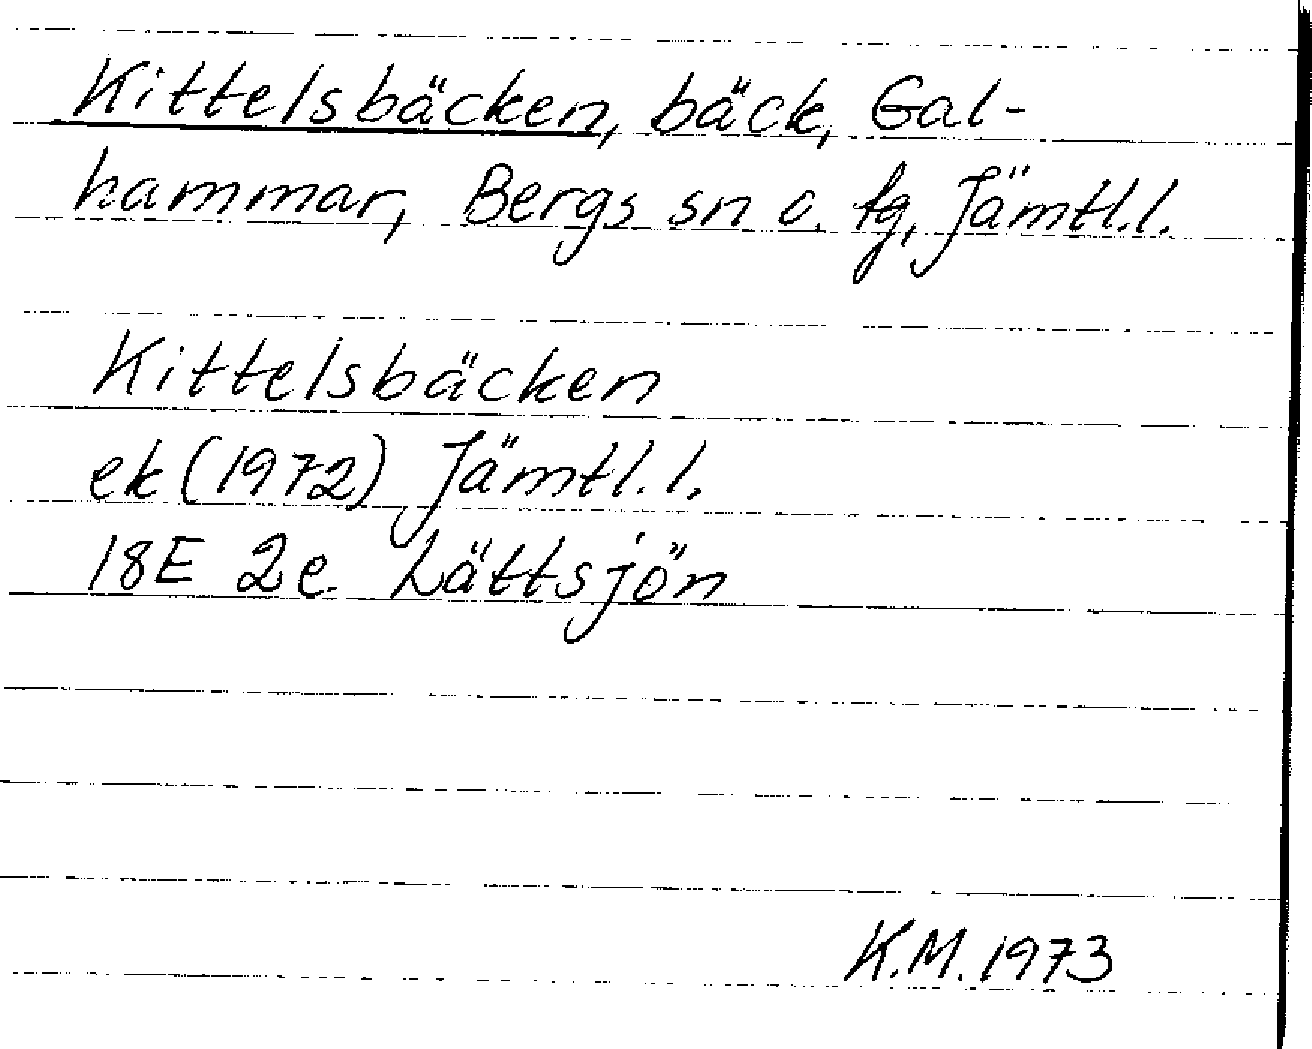 Kittelsbäcken, bäck, Gal-
hammar, Bergs sn o. fg, Jämtl.l.
Kittelsbäcken
ek (1972) Jämtl.l.
18E 2e Lättsjön
K.M. 1973